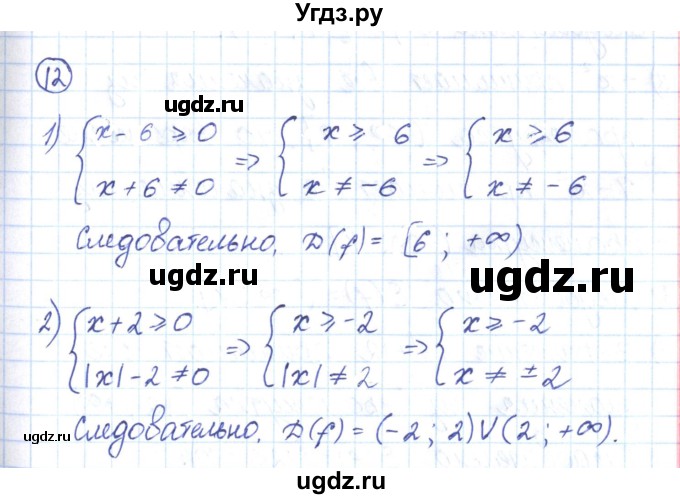 Угдз.ру
12
ugdz.ru
1) { x - 6 ≥ 0 => { x ≥ 6 => { x ≥ 6
x + 6 ≠ 0 x ≠ -6 x ≠ -6
ugdz.ru ugdz.ru
Следовательно, D(f) = [6 ; +∞)
ugdz.ru ugdz.ru
2) { x + 2 ≥ 0 => { x ≥ -2 => { x ≥ -2
|x| - 2 ≠ 0 |x| ≠ 2 x ≠ ±2
ugdz.ru Следовательно, D(f) = (-2 ; 2) ∪ (2 ; +∞).
ugdz.ru ugdz.ru